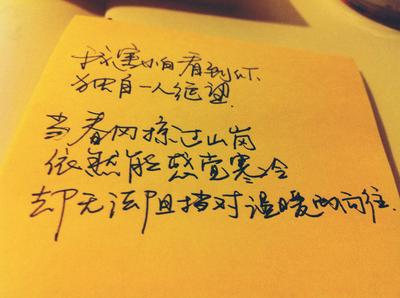 我害怕看到你
独自一人绝望
当春风掠过山岗
依然能感觉寒冷
却无法阻挡对温暖的向往